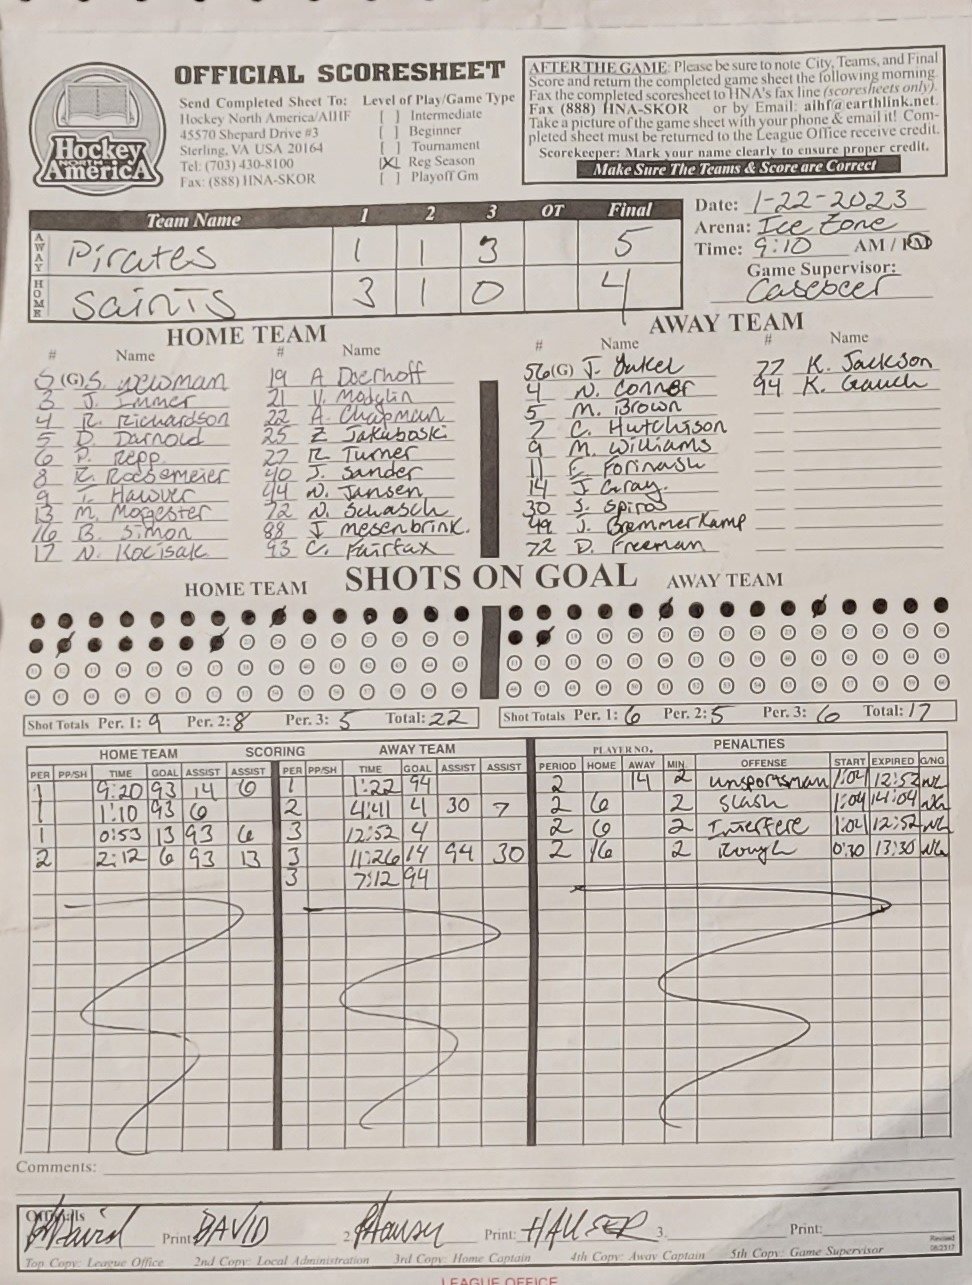 OFFICIAL SCORESHEET
Hockey
NORTH
AmericA
Send Completed Sheet To:
Hockey North America/AIHF
45570 Shepard Drive #3
Sterling, VA USA 20164
Tel: (703) 430-8100
Fax: (888) HNA-SKOR
Level of Play/Game Type
[ ] Intermediate
[ ] Beginner
[ ] Tournament
[X] Reg Season
[ ] Playoff Gm
AFTER THE GAME: Please be sure to note City, Teams, and Final
Score and return the completed game sheet the following morning.
Fax the completed scoresheet to HNA's fax line (scoresheets only).
Fax (888) HNA-SKOR or by Email: aihf@earthlink.net.
Take a picture of the game sheet with your phone & email it! Com-
pleted sheet must be returned to the League Office receive credit.
Scorekeeper: Mark your name clearly to ensure proper credit.
Make Sure The Teams & Score are Correct
Team Name 1 2 3 OT Final
AWAY Pirates 1 1 3 5
HOME Saints 3 1 0 4
Date: 1-22-2023
Arena: Ice Zone
Time: 9:10 AM / PM
Game Supervisor:
HOME TEAM
# Name # Name
(G) S. Newman 19 A Doerhoff
3 J. Immer 21 V. Modglin
4 R. Richardson 22 A. Chapman
5 D. Darnold 25 Z Jakuboski
6 P. Repp 27 R Turner
8 40 J. Sander
9 T. Hanover 44 N. Jansen
13 M. Morgester 72 N. Schasch
16 B. Simon 88 J mesenbrink.
17 N. Kocisak 93 C. Fairfax
AWAY TEAM
# Name # Name
56(G) J. Yukel 77 K. Jackson
4 N. Conner 94 K. Gauch
5 M. Brown
7 C. Hutchison
9 M. Williams
11 E. Forinash
14 J. Gray.
30 S. Spiros
49 J. Bremmerkamp
72 D. Freeman
HOME TEAM SHOTS ON GOAL AWAY TEAM
Shot Totals Per. 1: 9 Per. 2: 8 Per. 3: 5 Total: 22
Shot Totals Per. 1: 6 Per. 2: 5 Per. 3: 6 Total: 17
HOME TEAM SCORING AWAY TEAM
PER PP/SH TIME GOAL ASSIST ASSIST PER PP/SH TIME GOAL ASSIST ASSIST
1 9:20 93 14 6 1 1:22 94
1 1:10 93 6 2 4:41 4 30 7
1 0:53 13 93 6 3 12:52 4
2 2:12 6 93 13 3 11:26 14 94 30
3 7:12 94
PLAYER NO. PENALTIES
PERIOD HOME AWAY MIN. OFFENSE START EXPIRED G/NG
2 14 2 unsportsman 1:04 12:52 NG
2 6 2 Slash 1:04 14:04 NG
2 6 2 Interfere 1:04 12:52 NG
2 16 2 Rough 0:30 13:30 NG
Comments:
Officials
Print DAVID 2 Print: HAUSER 3. Print:
Top Copy: League Office 2nd Copy: Local Administration 3rd Copy: Home Captain 4th Copy: Away Captain 5th Copy: Game Supervisor
LEAGUE OFFICE